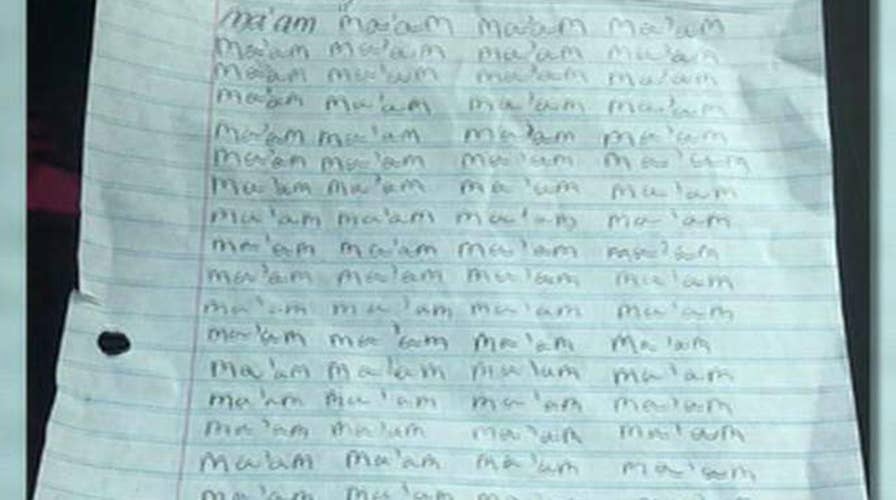 ma'am ma'am ma'am ma'am
ma'am ma'am ma'am ma'am
ma'am ma'am ma'am ma'am
ma'am ma'am ma'am ma'am
ma'am ma'am ma'am ma'am
ma'am ma'am ma'am ma'am
ma'am ma'am ma'am ma'am
ma'am ma'am ma'am ma'am
ma'am ma'am ma'am ma'am
ma'am ma'am ma'am ma'am
ma'am ma'am ma'am ma'am
ma'am ma'am ma'am ma'am
ma'am ma'am ma'am ma'am
ma'am ma'am ma'am ma'am
ma'am ma'am ma'am ma'am
ma'am ma'am ma'am ma'am
ma'am ma'am ma'am ma'am